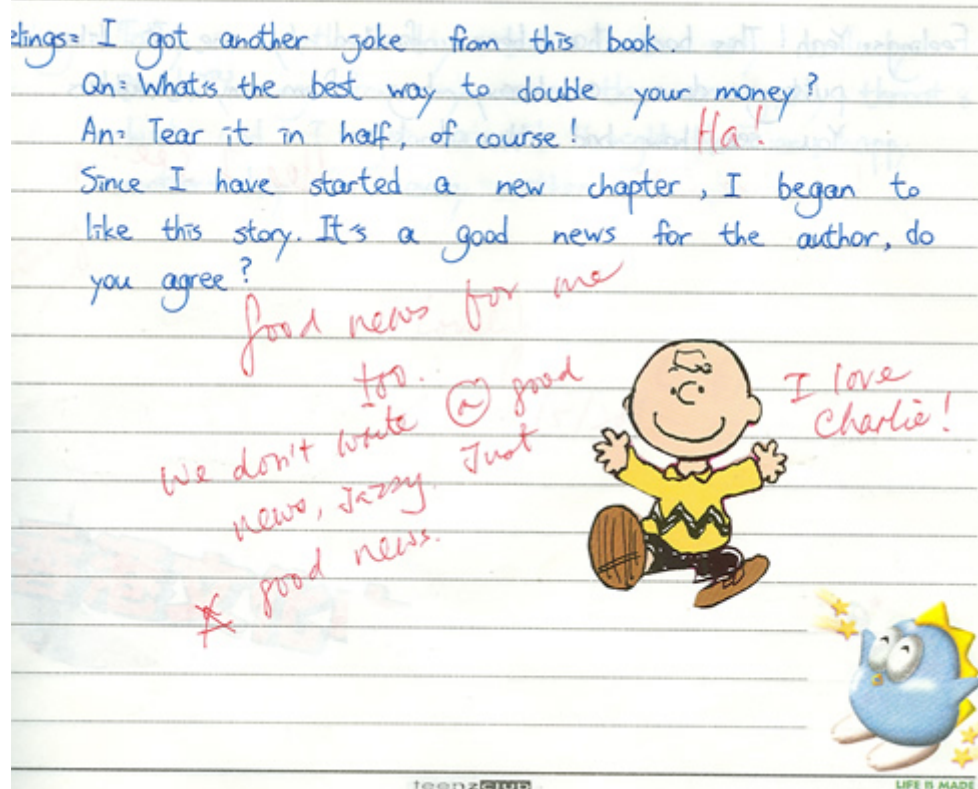 elings= I got another joke from this book.
Qn= What's the best way to double your money?
An= Tear it in half, of course!
Ha!
Since I have started a new chapter, I began to
like this story. It's a good news for the author, do
you agree?
Good news for me
too.
We don't write a good
news, Jazzy. Just
good news.
I love
Charlie!
teenzclub
LIFE IS MADE